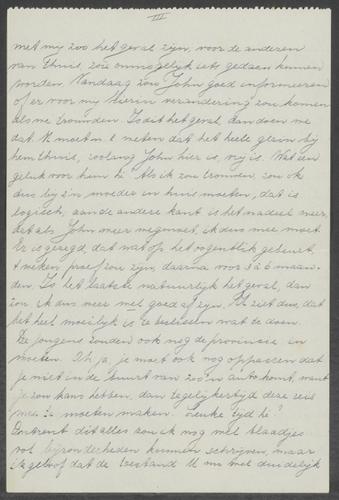 III
met mij zoo het geval zijn, voor de anderen
van thuis, zou onmogelijk iets gedaan kunnen
worden. Vandaag zou John goed informeeren
of er voor mij hierin verandering zou komen
als we trouwden. Is dit het geval, dan doen we
dat. U moet n.l. weten dat het heele gezin bij
hem thuis, zoolang John hier is, vrij is. Wat een
geluk voor hem hè. Als ik zou trouwen, zou ik
dus bij z'n moeder in huis moeten, dat is
logisch, aan de andere kant is het nadeel meer,
dat als John weer weg moet, ik dus mee moet.
Er is gezegd, dat wat op het oogenblik gebeurt,
't maken proef zou zijn, daarna voor 3 à 6 maan-
den. Is het laatste natuurlijk het geval, dan
zou ik dus weer met goed af zijn. U ziet dus, dat
het heel moeilijk is te beslissen wat te doen.
De jongens zouden ook nog de provincie in
moeten. Oh ja, je moet ook nog oppassen dat
je niet in de buurt van zoo'n auto komt, want
je zou kans hebben, dan tegelijkertijd deze reis
mee te moeten maken. Leuke tijd hè!
Omtrent dit alles zou ik nog wel blaadjes
vol bijzonderheden kunnen schrijven, maar
ik geloof dat de toestand U nu wel duidelijk